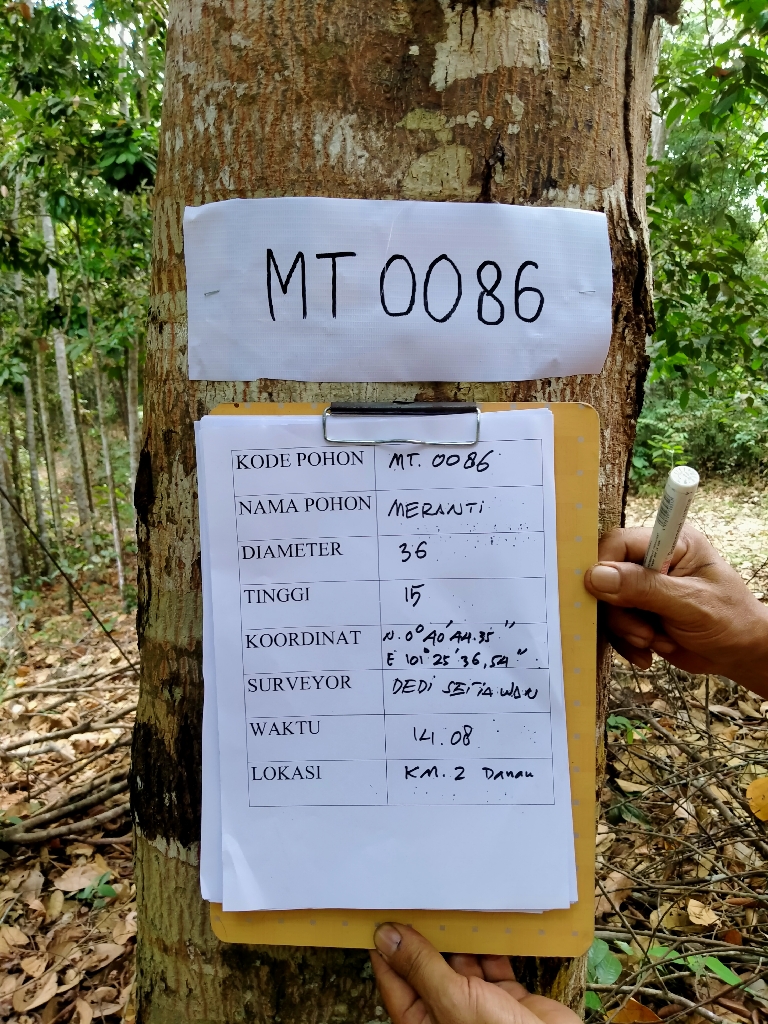 MT 0086
KODE POHON MT. 0086
NAMA POHON MERANTI
DIAMETER 36
TINGGI 15
KOORDINAT N. 0° 40' 44.35"
E 101° 25' 36,54"
SURVEYOR DEDI SETIAWAN
WAKTU 14.08
LOKASI KM. 2 Danau